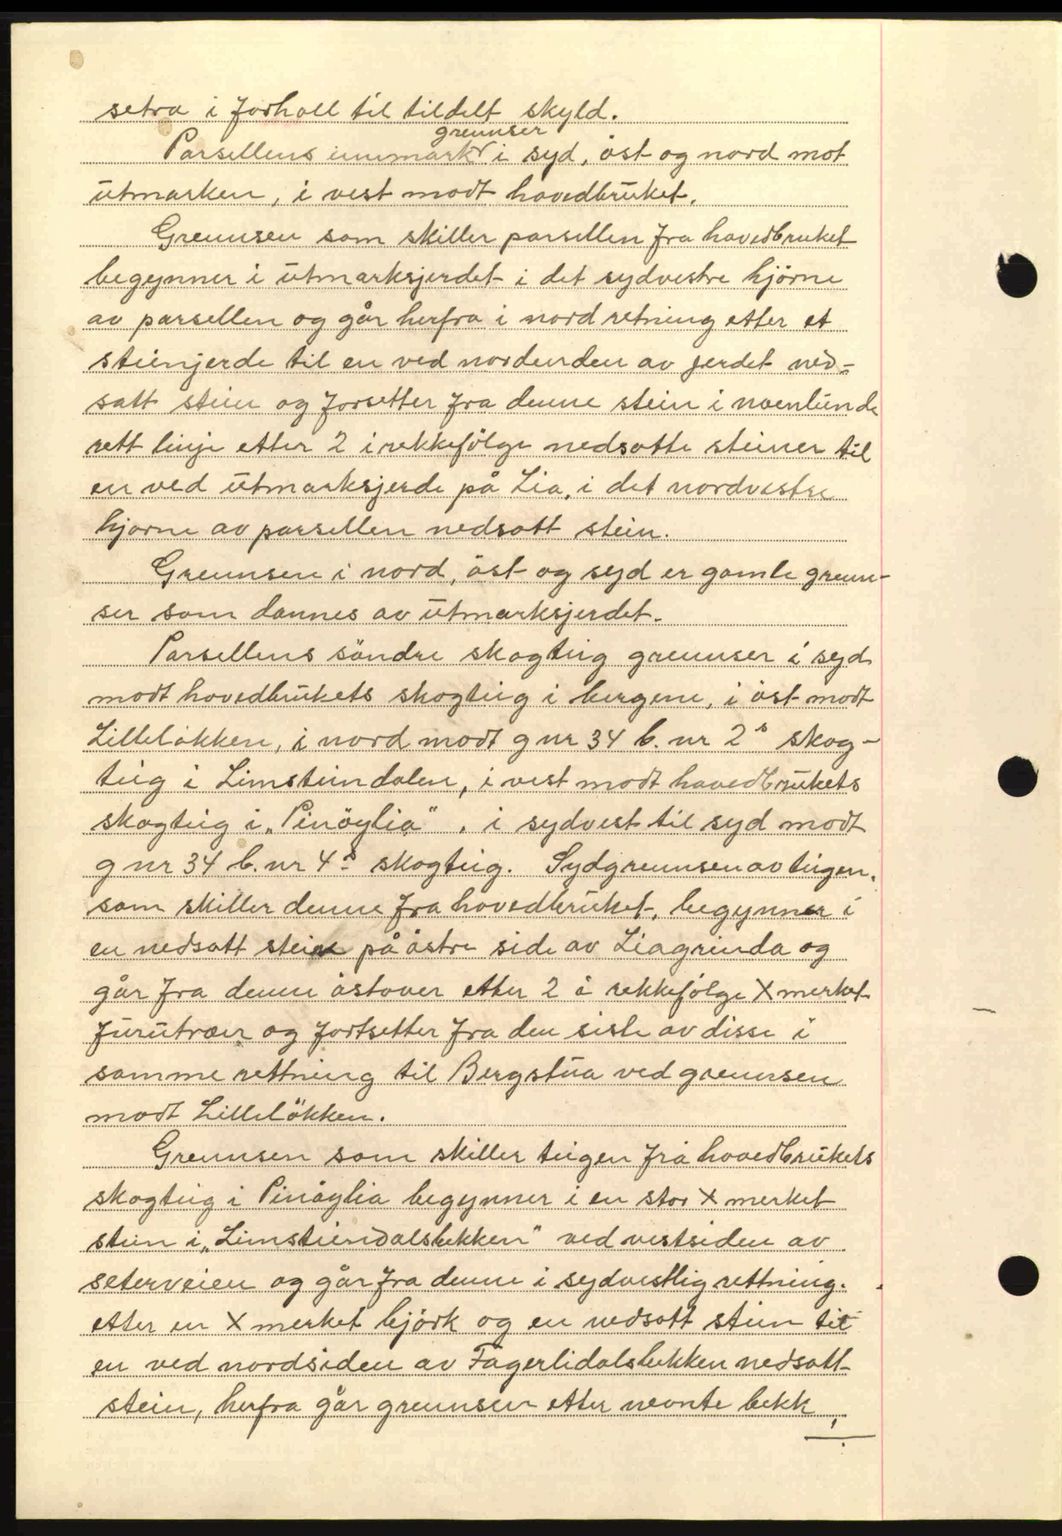 setra i forholl til tildelt skyld.
grennser
Parsellens innmark i syd, öst og nord mot
ūtmarken, i vest modt hovedbrūket.
Grennsen som skiller parsellen fra hovedbruket
begynner i ūtmarksjerdet i det sydvestre hjörne
av parsellen og går herfra i nord retning etter et
steinjerde til en ved nordenden av jerdet ned-
satt stein og forsetter fra denne stein i noenlūnde
rett linje etter 2 i rekkefölge nedsatte steiner til
en ved ūtmarksjerde på Lia, i det nordvestre
hjorne av parsellen nedsatt stein.
Grennsen i nord, öst og syd er gamle grenn-
ser som dannes av ūtmarksjerdet.
Parsellens söndre skogteig grennser i syd
modt hovedbrūkets skogteig i bergene, i öst modt
Lillelökken, i nord modt g nr 34 b. nr 2s skog-
teig i Limsteindalen, i vest modt hovedbrūkets
skogteig i „Pinöylia", i sydvest til syd modt
g nr 34 b. nr 4s skogteig. Sydgrennsen av teigen,
som skiller denne fra hovedbrūket, begynner i
en nedsatt stein på östre side av Liagrinda og
går fra denne östover etter 2 i rekkefölge X merket
fūrūtrær og fortsetter fra den siste av disse i
samme rettning til Bergstūa ved grennsen
modt Lillelökken.
Grennsen som skiller teigen frå hovedbrūkets
skogteig i Pinöylia begynner i en stor X merket
stein i „Limsteindalsbekken" ved vestsiden av
seterveien og går fra denne i sydvestlig rettning.
etter en X merket björk og en nedsatt stein til
en ved nordsiden av Fagerlidalsbekken nedsatt
stein, herfra går grennsen etter nevnte bekk